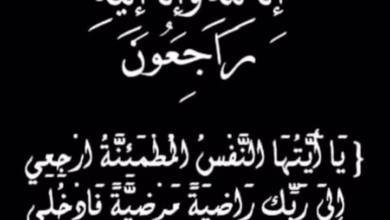 إنا لله وإنا إليه
راجعون
{ يَا أَيَّتُهَا النَّفْسُ الْمُطْمَئِنَّةُ ارْجِعِي
إِلَى رَبِّكِ رَاضِيَةً مَرْضِيَّةً فَادْخُلِي